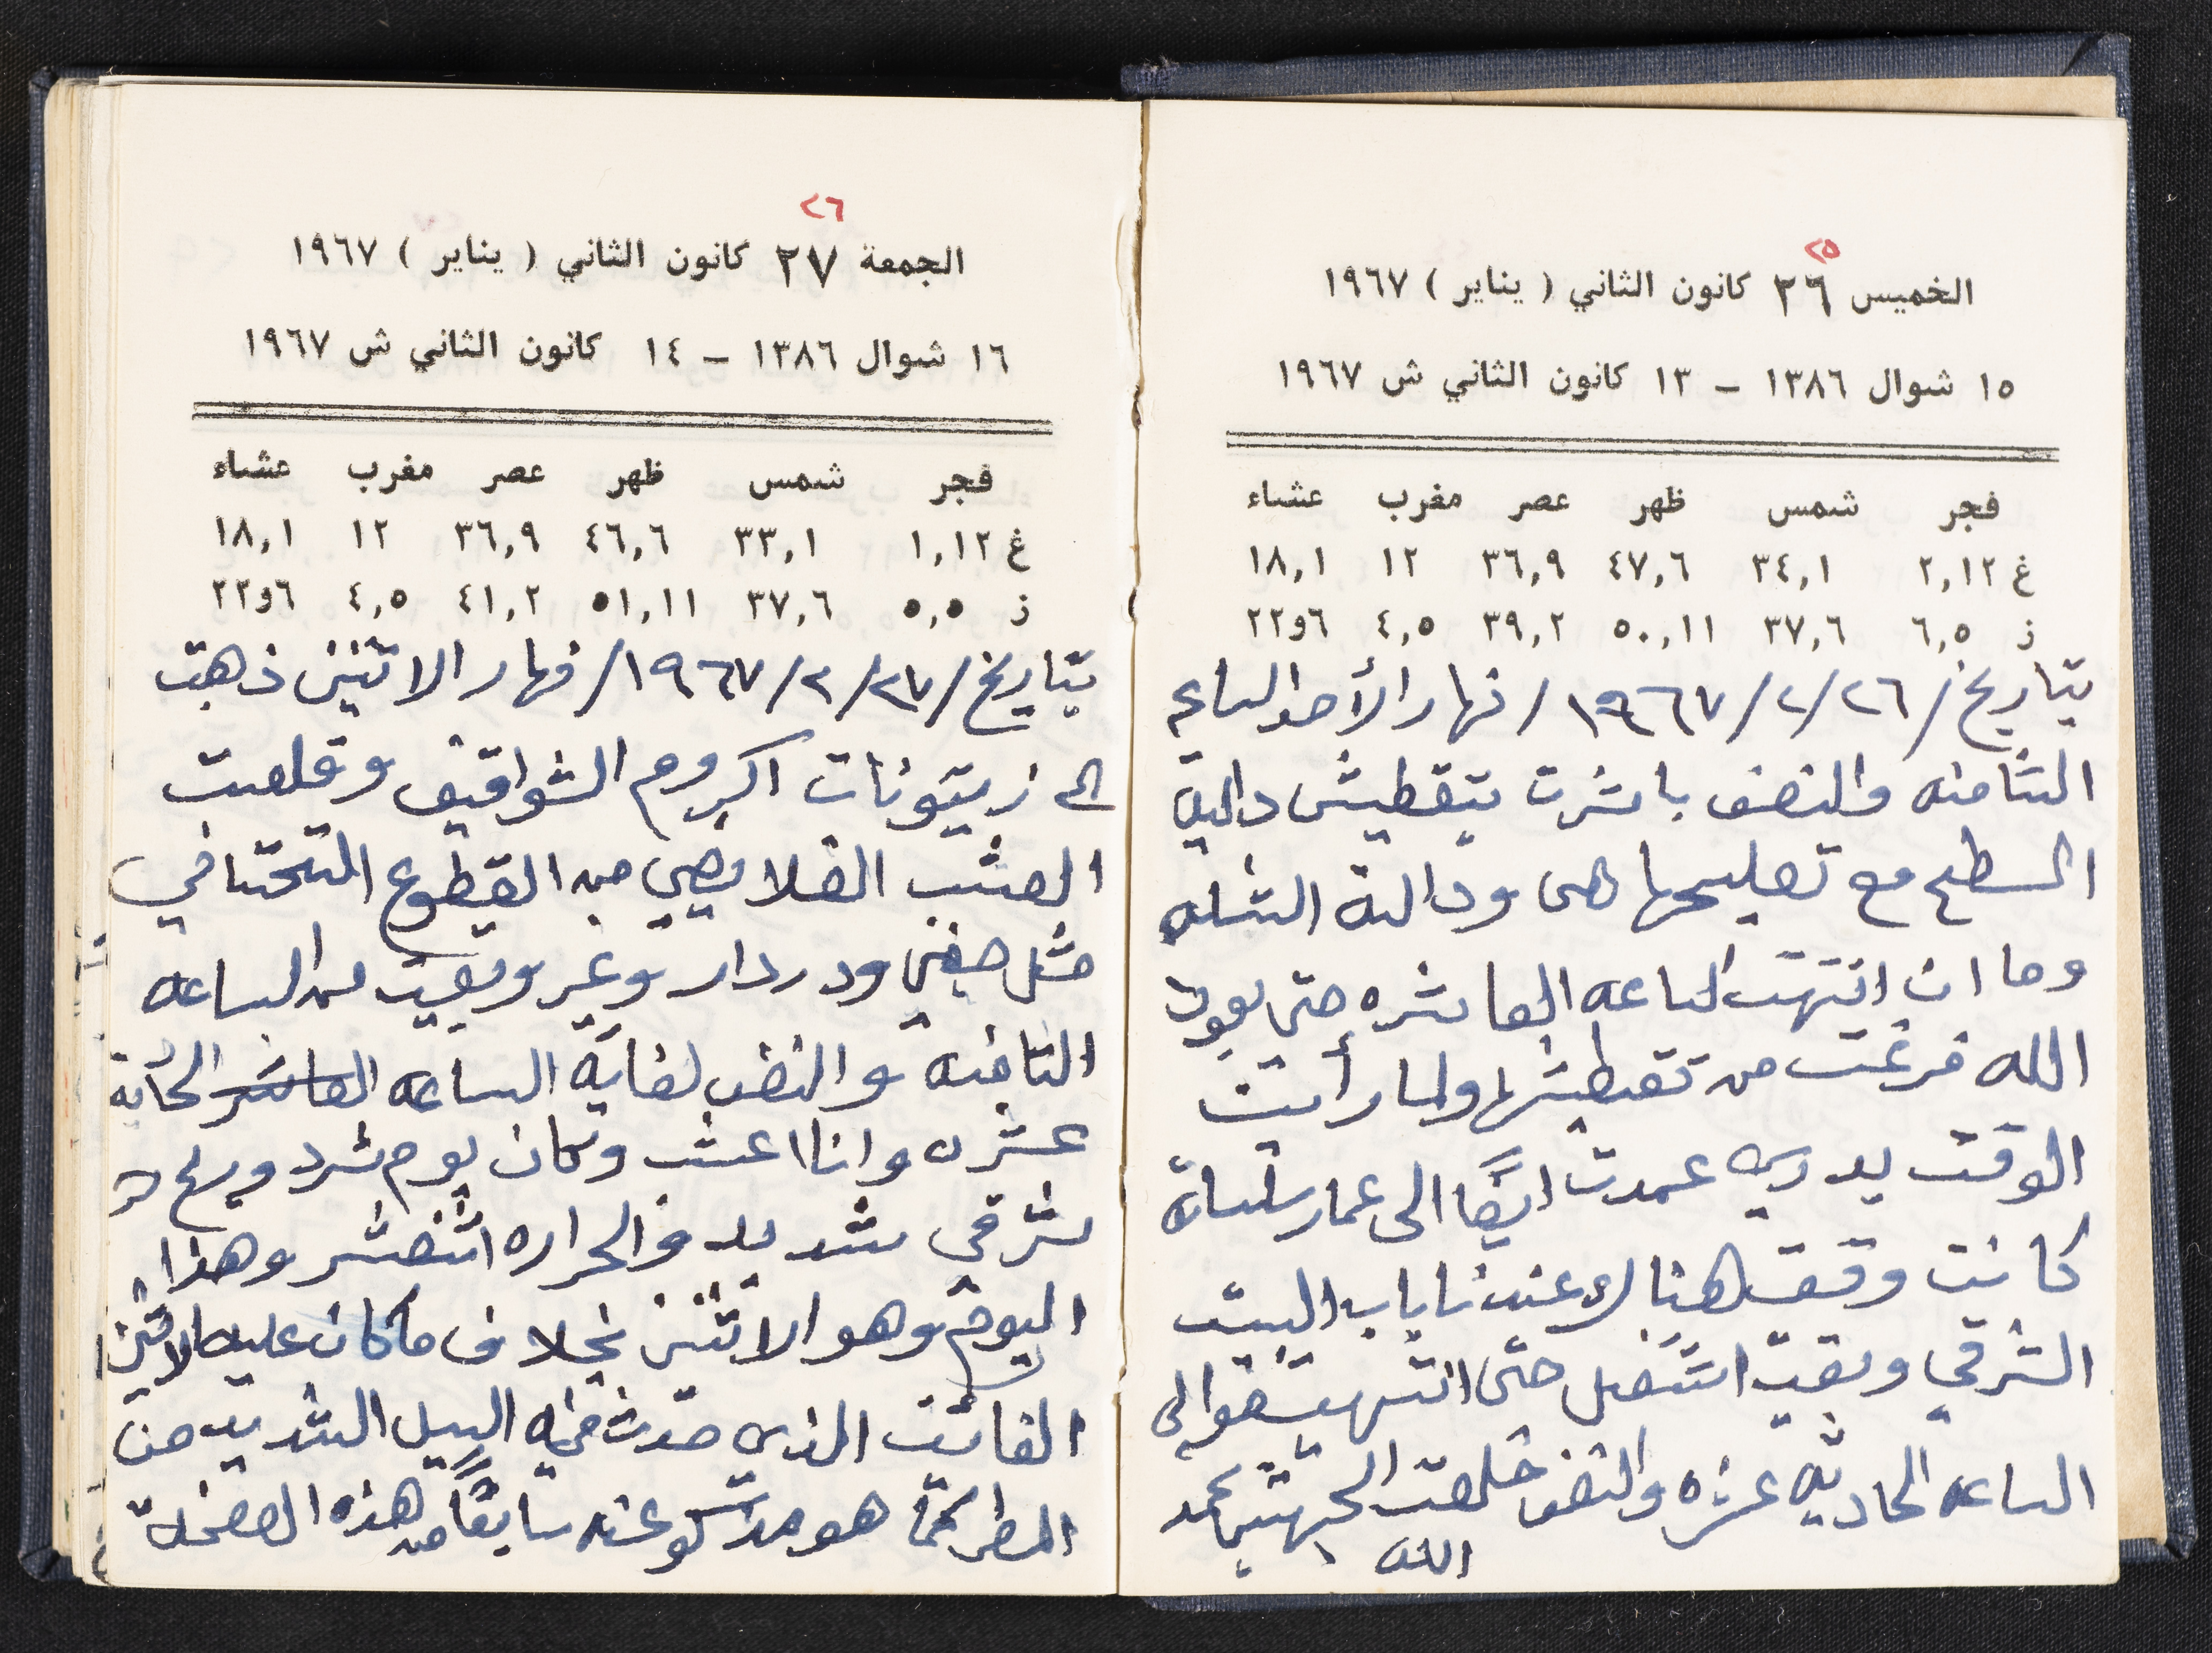 ٢٥
الخميس ٢٦ كانون الثاني ( يناير ) ١٩٦٧
١٥ شوال ١٣٨٦ – ١٣ كانون الثاني ش ١٩٦٧
فجر شمس ظهر عصر مغرب عشاء
غ ٢,١٢ ٣٤,١ ٤٧,٦ ٣٦,٩ ١٢ ١٨,١
ز ٦,٥ ٣٧,٦ ٥٠,١١ ٣٩,٢ ٤,٥ ٦و٢٢
بتاريخ /٢٦/٢/١٩٦٧/ نهار الأحد الساعه
الثامنه والنصف باشرت بتقطيش دالية
السطح مع تعليمها هى ودالية التله
وما ان انتهت الساعه العاشره حتى بعون
الله فرغت من تقطيشها ولما رأيت
الوقت بدري عمدت ايضًا الى عمار سلسلة
كانت وقعت هناك عندنا باب البيت
الشرقي وبقيت اشتغل حتى انتهيت حوالى
الساعه الحاديه عشره والنصف خلصت الجهتين بحمد
الله
٢٦
الجمعة ٢٧ كانون الثاني ( يناير ) ١٩٦٧
١٦ شوال ١٣٨٦ – ١٤ كانون الثاني ش ١٩٦٧
فجر شمس ظهر عصر مغرب عشاء
غ ١,١٢ ٣٣,١ ٤٦,٦ ٣٦,٩ ١٢ ١٨,١
ز ٥,٥ ٣٧,٦ ٥١,١١ ٤١,٢ ٤,٥ ٦و٢٢
بتاريخ /٢٧/٢/١٩٦٧/ نهار الاثنين ذهبت
الى زيتونات اكروم الشواقيف وقلعت
العشب من القطوع التحتاني
مثل ودردار وغير وبقيت من الساعه
الثامنه والنصف لغاية الساعه العاشر الحادية
عشره وانا اعشب وكان يوم شرد وريح
شرقي شديد والحراره اثنعشر وهذا
اليوم وهو الاثنين بخلاف ما كان عليه الاثنين
الفائت الذي حدث فيه السيل الشديد من
المطر كما هو مذكور عنه سابقًا من هذه الصفحة